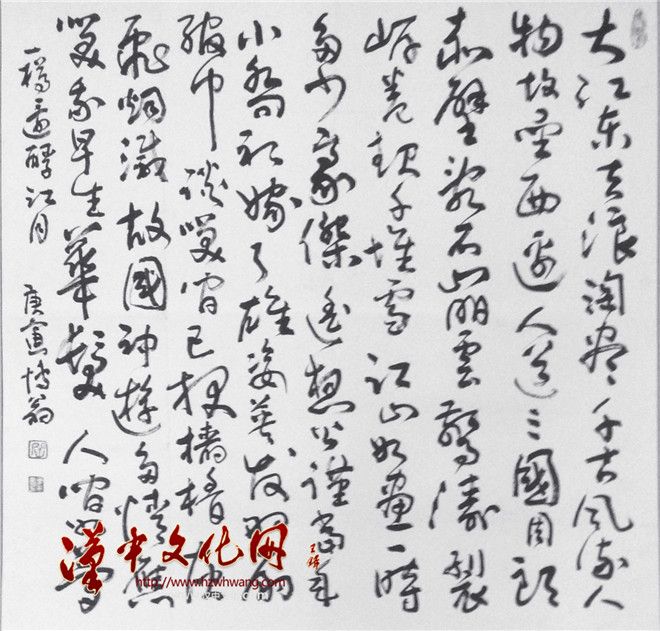 大江东去浪淘尽千古风流人
物故垒西边人道三國周郎
赤壁乱石崩雲驚涛裂
岸卷起千堆雪江山如画一時
多少豪傑遥想公谨当年
小喬初嫁了雄姿英发羽扇
綸巾談笑间已樯橹灰
飛烟滅故國神遊多情應
笑我早生華髮人间如夢
一樽還酹江月
庚寅博翁
漢中文化网
http://www.hzwhwang.com